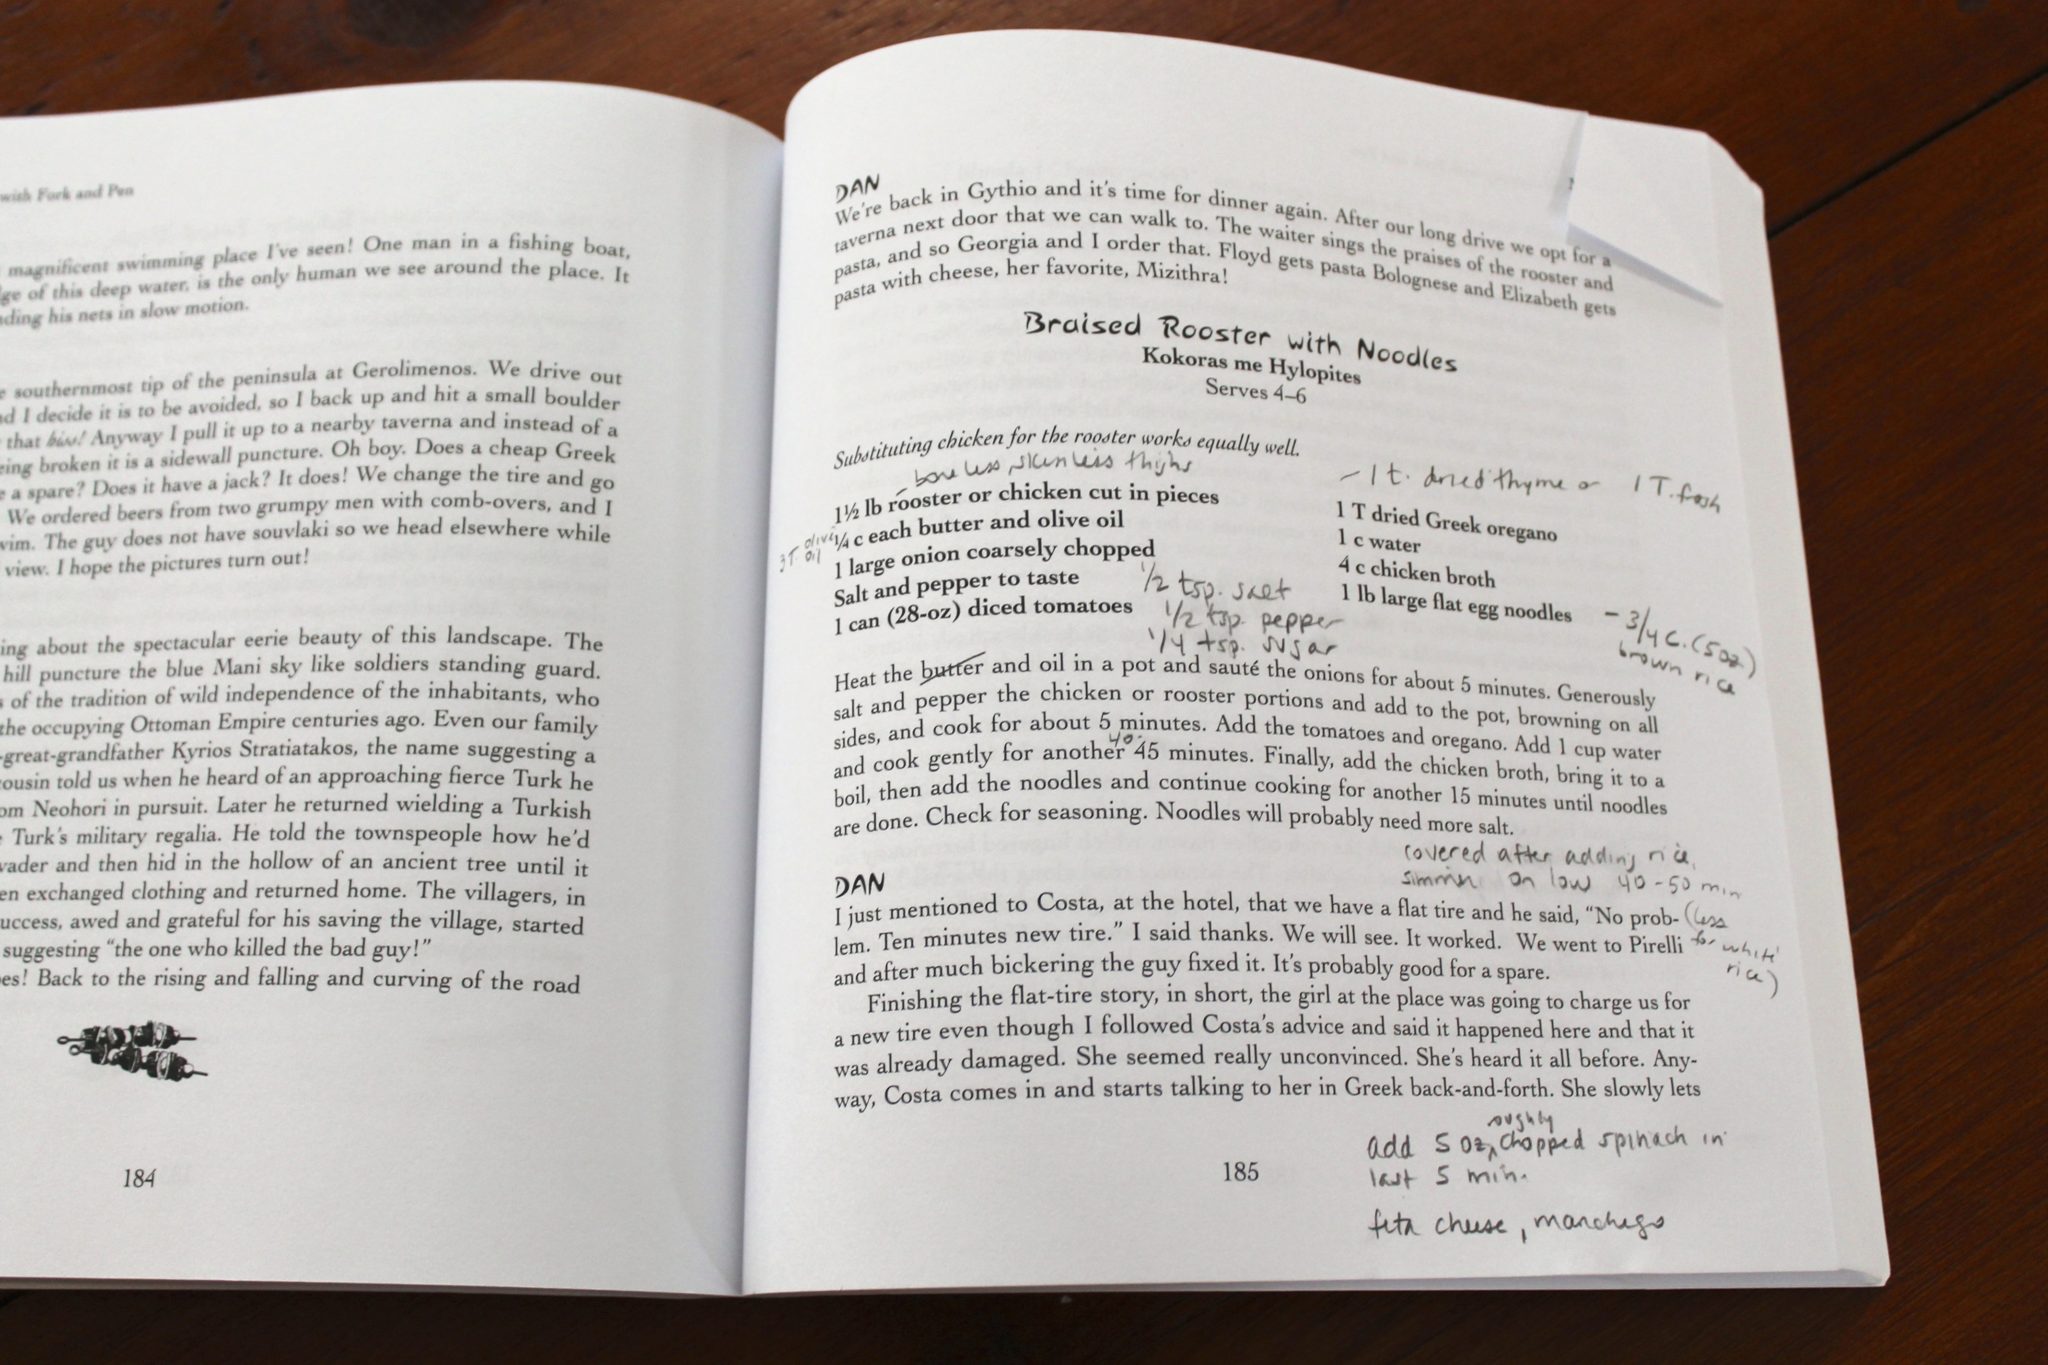 with Fork and Pen
magnificent swimming place I've seen! One man in a fishing boat,
of this deep water, is the only human we see around the place. It
his nets in slow motion.
southernmost tip of the peninsula at Gerolimenos. We drive out
I decide it is to be avoided, so I back up and hit a small boulder
that hiss! Anyway I pull it up to a nearby taverna and instead of a
broken it is a sidewall puncture. Oh boy. Does a cheap Greek
a spare? Does it have a jack? It does! We change the tire and go
We ordered beers from two grumpy men with comb-overs, and I
The guy does not have souvlaki so we head elsewhere while
view. I hope the pictures turn out!
about the spectacular eerie beauty of this landscape. The
hill puncture the blue Mani sky like soldiers standing guard.
of the tradition of wild independence of the inhabitants, who
the occupying Ottoman Empire centuries ago. Even our family
-great-grandfather Kyrios Stratiatakos, the name suggesting a
told us when he heard of an approaching fierce Turk he
Neohori in pursuit. Later he returned wielding a Turkish
Turk's military regalia. He told the townspeople how he'd
and then hid in the hollow of an ancient tree until it
exchanged clothing and returned home. The villagers, in
awed and grateful for his saving the village, started
suggesting "the one who killed the bad guy!"
Back to the rising and falling and curving of the road
184
DAN
We're back in Gythio and it's time for dinner again. After our long drive we opt for a
taverna next door that we can walk to. The waiter sings the praises of the rooster and
pasta, and so Georgia and I order that. Floyd gets pasta Bolognese and Elizabeth gets
pasta with cheese, her favorite, Mizithra!
Braised Rooster with Noodles
Kokoras me Hylopites
Serves 4–6
Substituting chicken for the rooster works equally well.
boneless, skinless thighs
1½ lb rooster or chicken cut in pieces
3T olive oil
¼ c each butter and olive oil
1 large onion coarsely chopped
Salt and pepper to taste
1/2 tsp. salt
1 can (28-oz) diced tomatoes
1/2 tsp. pepper
1/4 tsp. sugar
- 1 t. dried thyme or 1 T. fresh
1 T dried Greek oregano
1 c water
4 c chicken broth
1 lb large flat egg noodles
- 3/4 c. (5 oz.)
brown rice
Heat the butter and oil in a pot and sauté the onions for about 5 minutes. Generously
salt and pepper the chicken or rooster portions and add to the pot, browning on all
sides, and cook for about 5 minutes. Add the tomatoes and oregano. Add 1 cup water
40-
and cook gently for another 45 minutes. Finally, add the chicken broth, bring it to a
boil, then add the noodles and continue cooking for another 15 minutes until noodles
are done. Check for seasoning. Noodles will probably need more salt.
covered after adding rice,
simmer on low 40-50 min
(less
for white
rice)
DAN
I just mentioned to Costa, at the hotel, that we have a flat tire and he said, "No prob-
lem. Ten minutes new tire." I said thanks. We will see. It worked. We went to Pirelli
and after much bickering the guy fixed it. It's probably good for a spare.
Finishing the flat-tire story, in short, the girl at the place was going to charge us for
a new tire even though I followed Costa's advice and said it happened here and that it
was already damaged. She seemed really unconvinced. She's heard it all before. Any-
way, Costa comes in and starts talking to her in Greek back-and-forth. She slowly lets
roughly
add 5 oz. chopped spinach in
last 5 min.
feta cheese, manchego
185